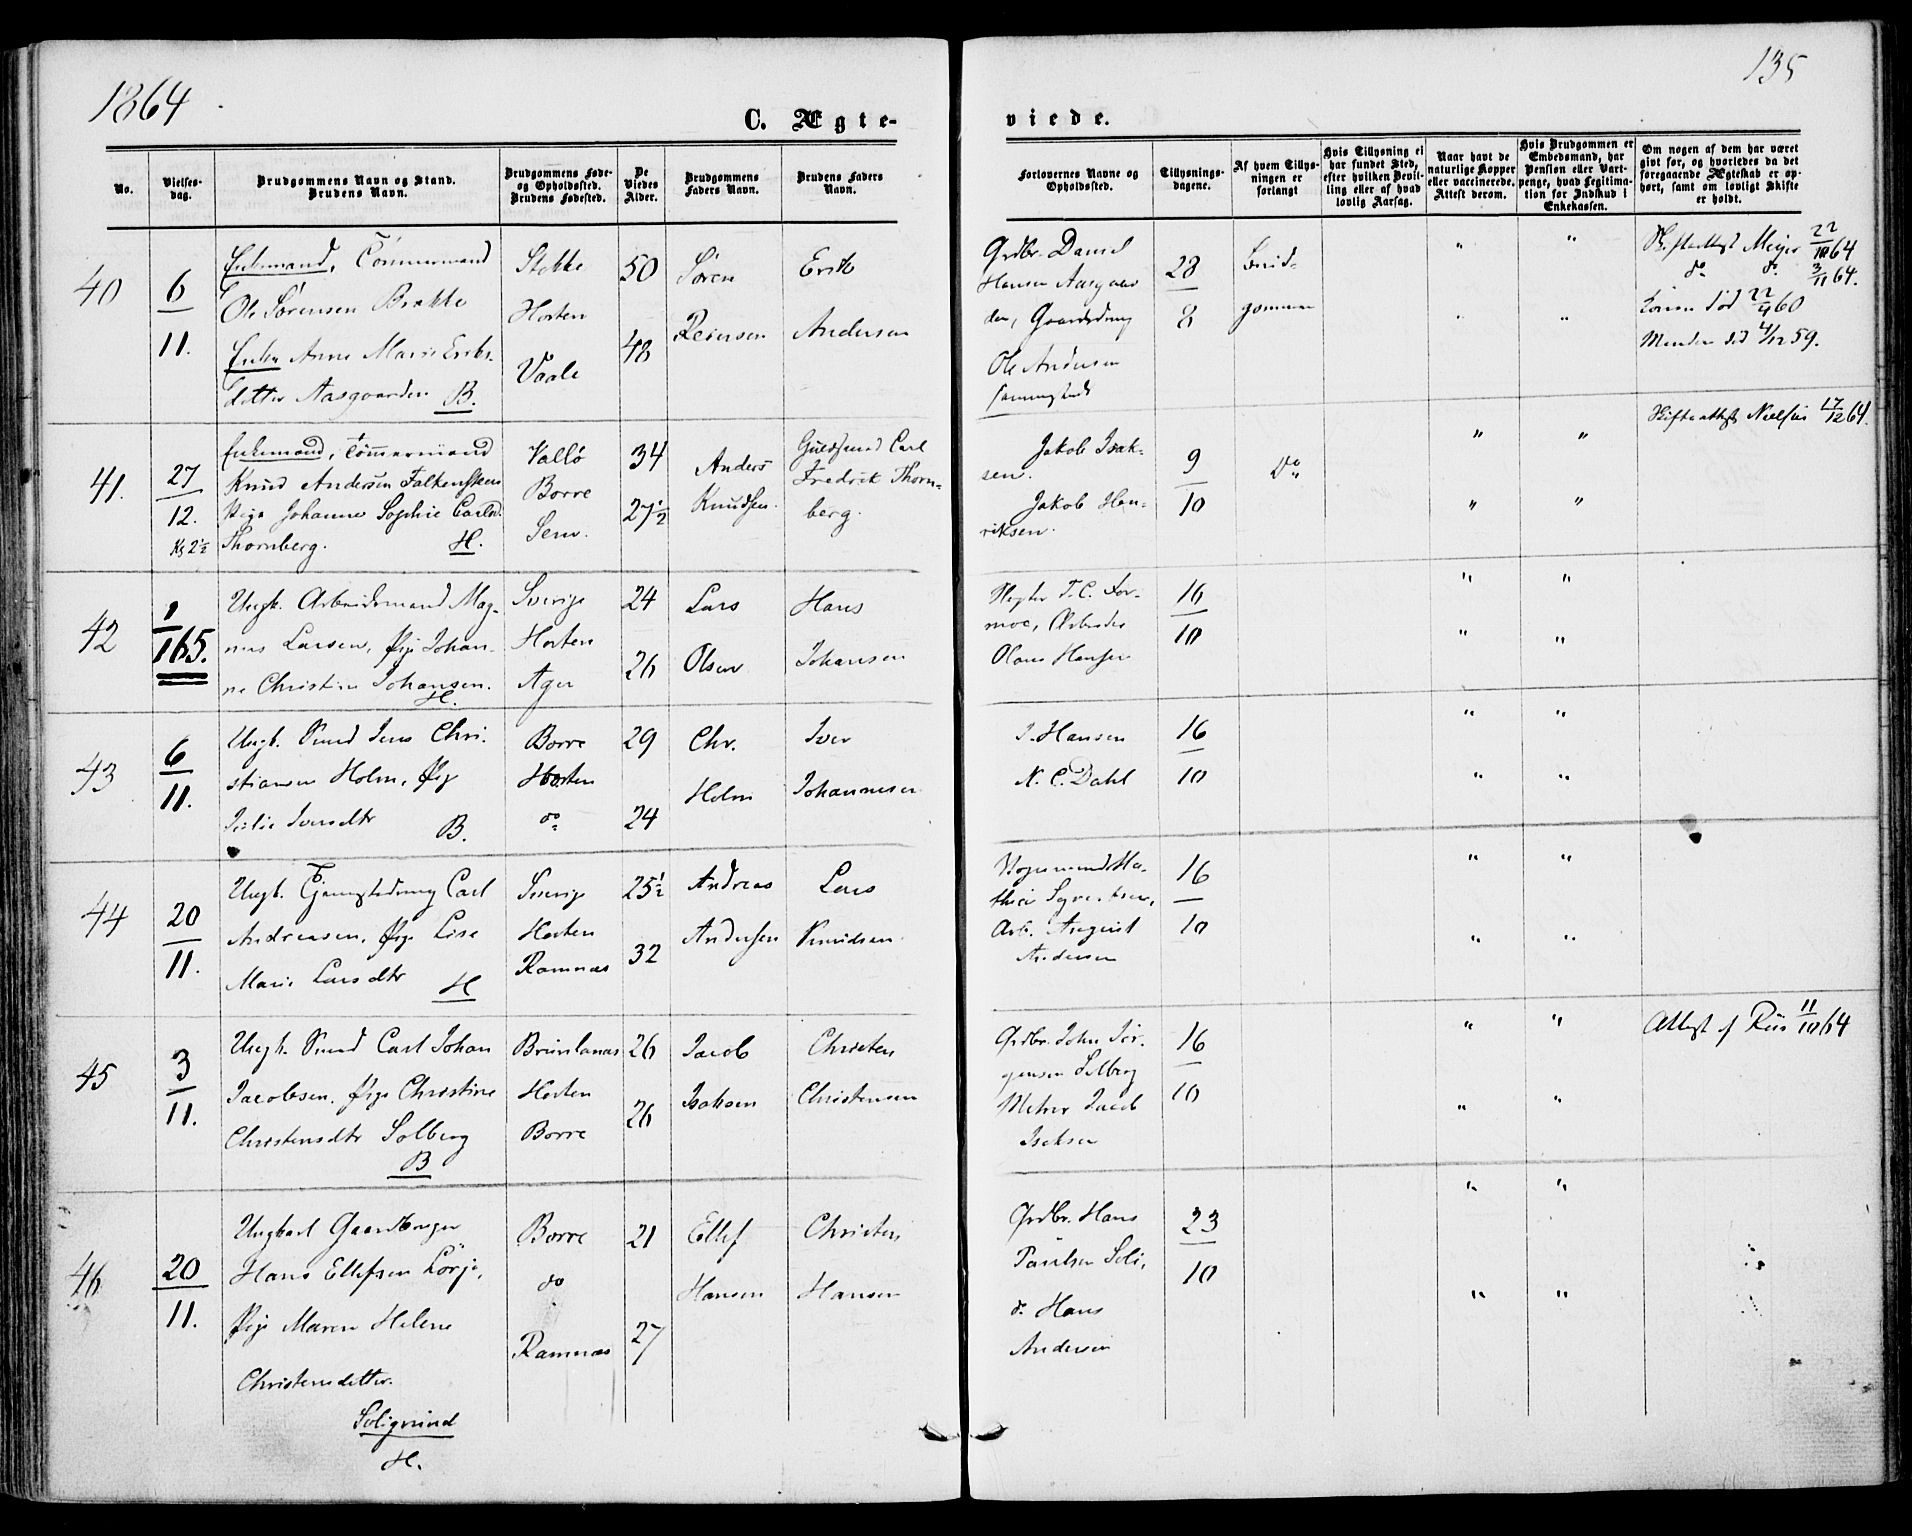 1864
135
C. Ægte-
viede.
No.
Vielses-
dag.
Brudgommens Navn og Stand.
Brudens Navn.
Brudgommens Føde-
og Opholdssted.
Brudens Fødested.
De
Viedes
Alder.
Brudgommens
Faders Navn.
Brudens Faders
Navn.
Forlovernes Navne og
Opholdssted.
Tillysnings-
dagene.
Af hvem Tillys-
ningen er
forlangt
Hvis Tillysning ei
har fundet Sted,
efter hvilken Bevil-
ling eller af hvad
lovlig Aarsag.
Naar havt de
naturlige Kopper
eller vaccinerede.
Attest derom.
Hvis Brudgommen er
Embedsmand, har
Pension eller Vart-
penge, hvad Legitima-
tion for Indskud i
Enkekassen.
Om nogen af dem har været
gift før, og hvorledes da det
foregaaende Ægteskab er op-
hørt, samt om lovligt Skifte
er holdt.
40
6
11.
Enkemand, Tömmermand
Ole Sörensen Brekke
Enke Anne Marie Eriks-
datter Aasgaarden B.
Stokke
Horten
Vaale
50
48
Sören
Erik
Andersen
Grdbr. Daniel
Hansen Aasgaar
den, Gaardsdreng
Ole Andersen
sammesteds
28
8
Brud-
gommen
" "
" "
Skifteattest Meyer 22/10 64
do do 3/11 64.
Konen död 22/4 60
Manden död 4/12 59.
41.
27
12.
Kl 2½
Enkemand, Tömmermand
Knud Andersen Falkensteen
Pige Johanne Sophie Carlsd.
Thornberg. H.
Vallö
Borre
Sem.
34
27½
Anders
Knudsen.
Guldsmed Carl
Fredrik Thorn-
berg.
Jakob Isak-
sen.
Jakob Hen-
riksen.
9
10
Do
" "
" "
Skifteattest Nielsen 17/12 64.
42
1
1 65.
Ungk. Arbeidsmand Mag-
nus Larsen, Pige Johan-
ne Christine Johansen.
H.
Sverige
Horten
Ager
24
26
Lars
Olsen
Hans
Johansen
Olaus Hansen
16
10
" "
" "
43
6
11.
Ungk. Smed Jens Chri-
stiansen Holm, Pige
Iversdtr B.
Borre
Horten
do
29
24
Chr.
Holm
Iver
Johannesen
J. Hansen
N. C. Dahl
16
10
" "
" "
44
20
11.
Ungk. Tjenestedreng Carl
Andreasen, Pige Lise
Marie Larsdtr H
Sverig
Horten
Ramnæs
25½
32
Andreas
Andersen
Lars
Knudsen
Arb. August
Andersen
16
10
" "
" "
45
3
11.
Ungk. Smed Carl Johan
Jacobsen. Pige Christine
Christensdtr Solberg
B
Brunlanæs
Horten
Borre
26
26
Jacob
Isaksen
Christen
Christensen
Grdbr. John Jör-
gensen Solberg
Jacob
Isaksen
16
10
" "
" "
Attest f Riis 11/10 64
46
20
11.
Ungkarl Gaardbruger
Hans Ellefsen Lörje,
Pige Maren Helene
Christensdatter.
Soligrind
H.
Borre
do
Ramnæs
21
27
Ellef
Hansen
Christen
Hansen
Grdbr. Hans
Paulsen Soli,
do Hans
Andersen
23
10
" "
" "